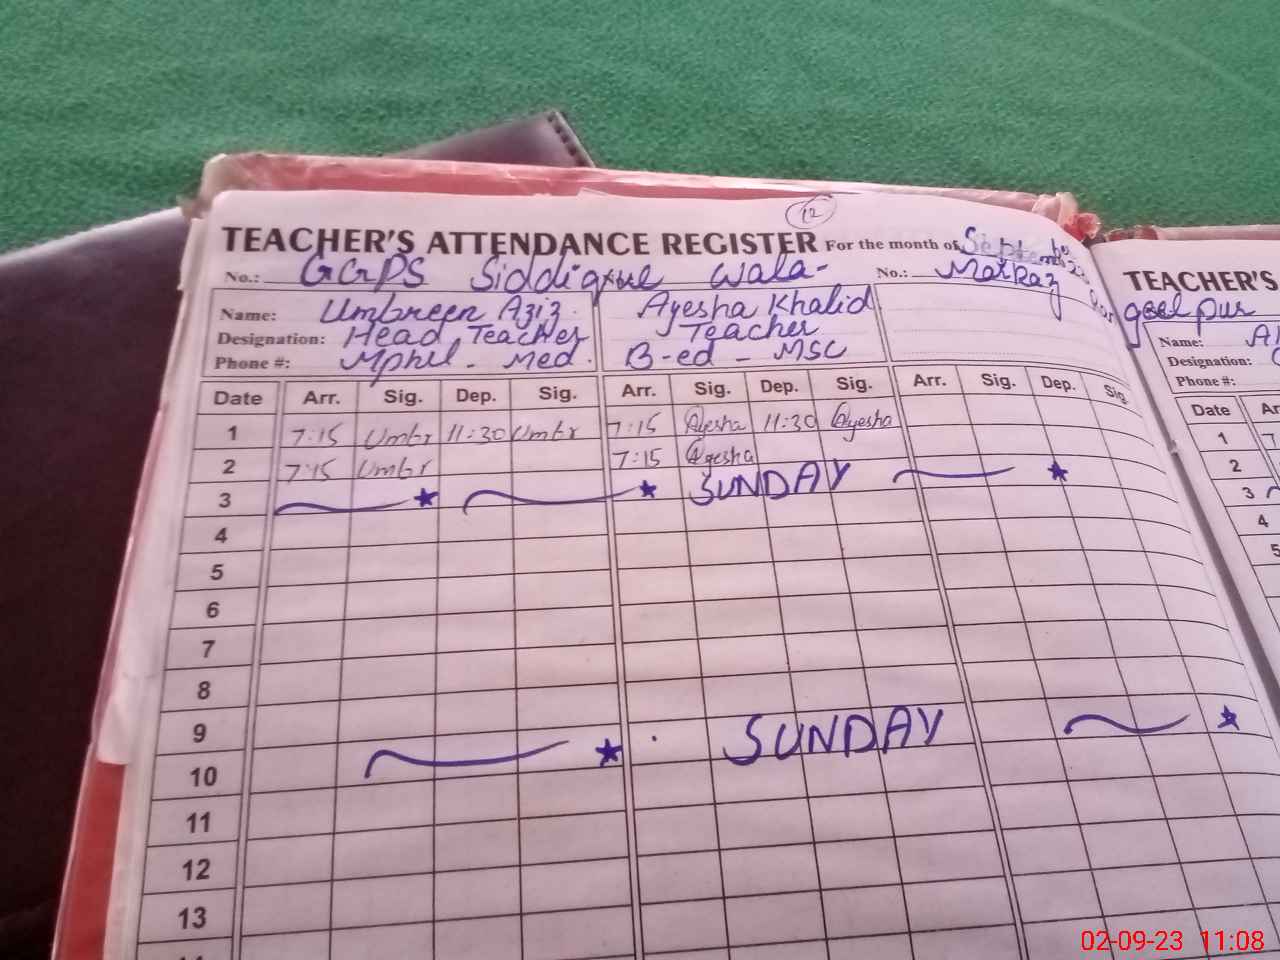 12
TEACHER'S ATTENDANCE REGISTER For the month of September
No.: GGPS Siddique wala- No.:
Name: Umbreen Aziz. Ayesha Khalid
Designation: Head Teacher Teacher
Phone #: Mphil - Med. B-ed - MSC
Date Arr. Sig. Dep. Sig. Arr. Sig. Dep. Sig. Arr. Sig. Dep. Sig.
1 7:15 Umbr 11:30 Umbr 7:15 Ayesha 11:30 Ayesha
2 7:15 Umbr 7:15 Ayesha
3 SUNDAY
4
5
6
7
8
9
10 SUNDAY
11
12
13
TEACHER'S
Name:
Designation:
Phone #:
Date
1
2
3
4
5
02-09-23 11:08